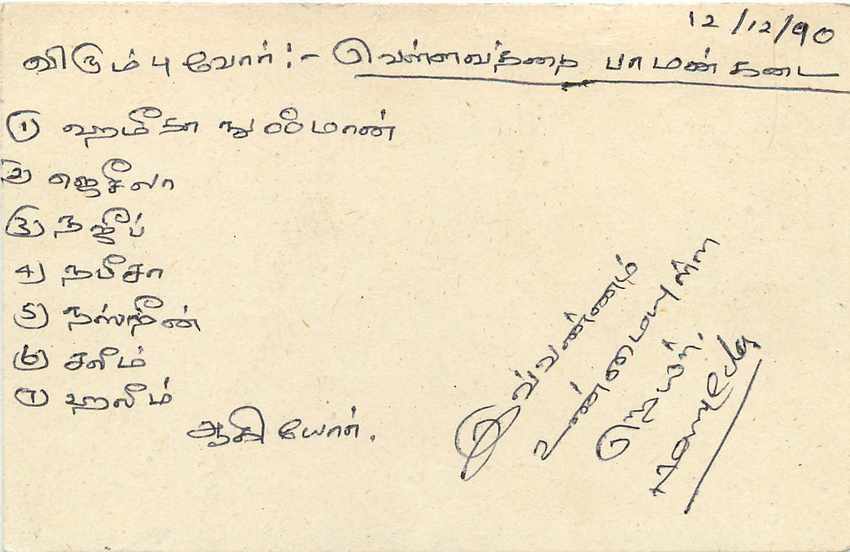 12/12/90
விரும்புவோர்:- வெள்ளவத்தை பாமன்கடை
1) ஹமீதா நுஃமான்
2) ஜெசீலா
3) நஜீப்
4) நபீசா
5) நஸ்ரீன்
6) சலீம்
7) ஹலீம்
ஆகியோர்.
இவ்வண்ணம்
உண்மையுள்ள
நேயர்.